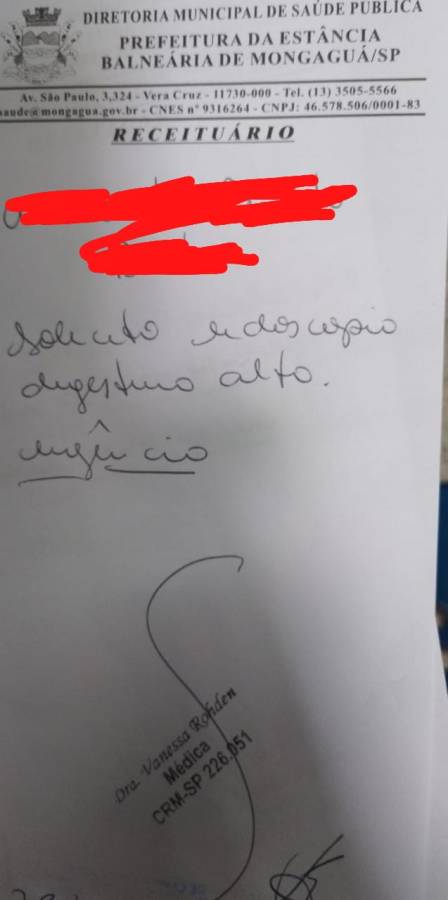 DIRETORIA MUNICIPAL DE SAÚDE PÚBLICA
PREFEITURA DA ESTÂNCIA
BALNEÁRIA DE MONGAGUÁ/SP
Av. São Paulo, 3,324 - Vera Cruz - 11730-000 - Tel. (13) 3505-5566
saude@mongagua.gov.br - CNES nº 9316264 - CNPJ: 46.578.506/0001-83
RECEITUÁRIO
Solicito endoscopia
digestiva alta.
urgência
Dra. Vanessa Rohden
Médica
CRM-SP 226.051